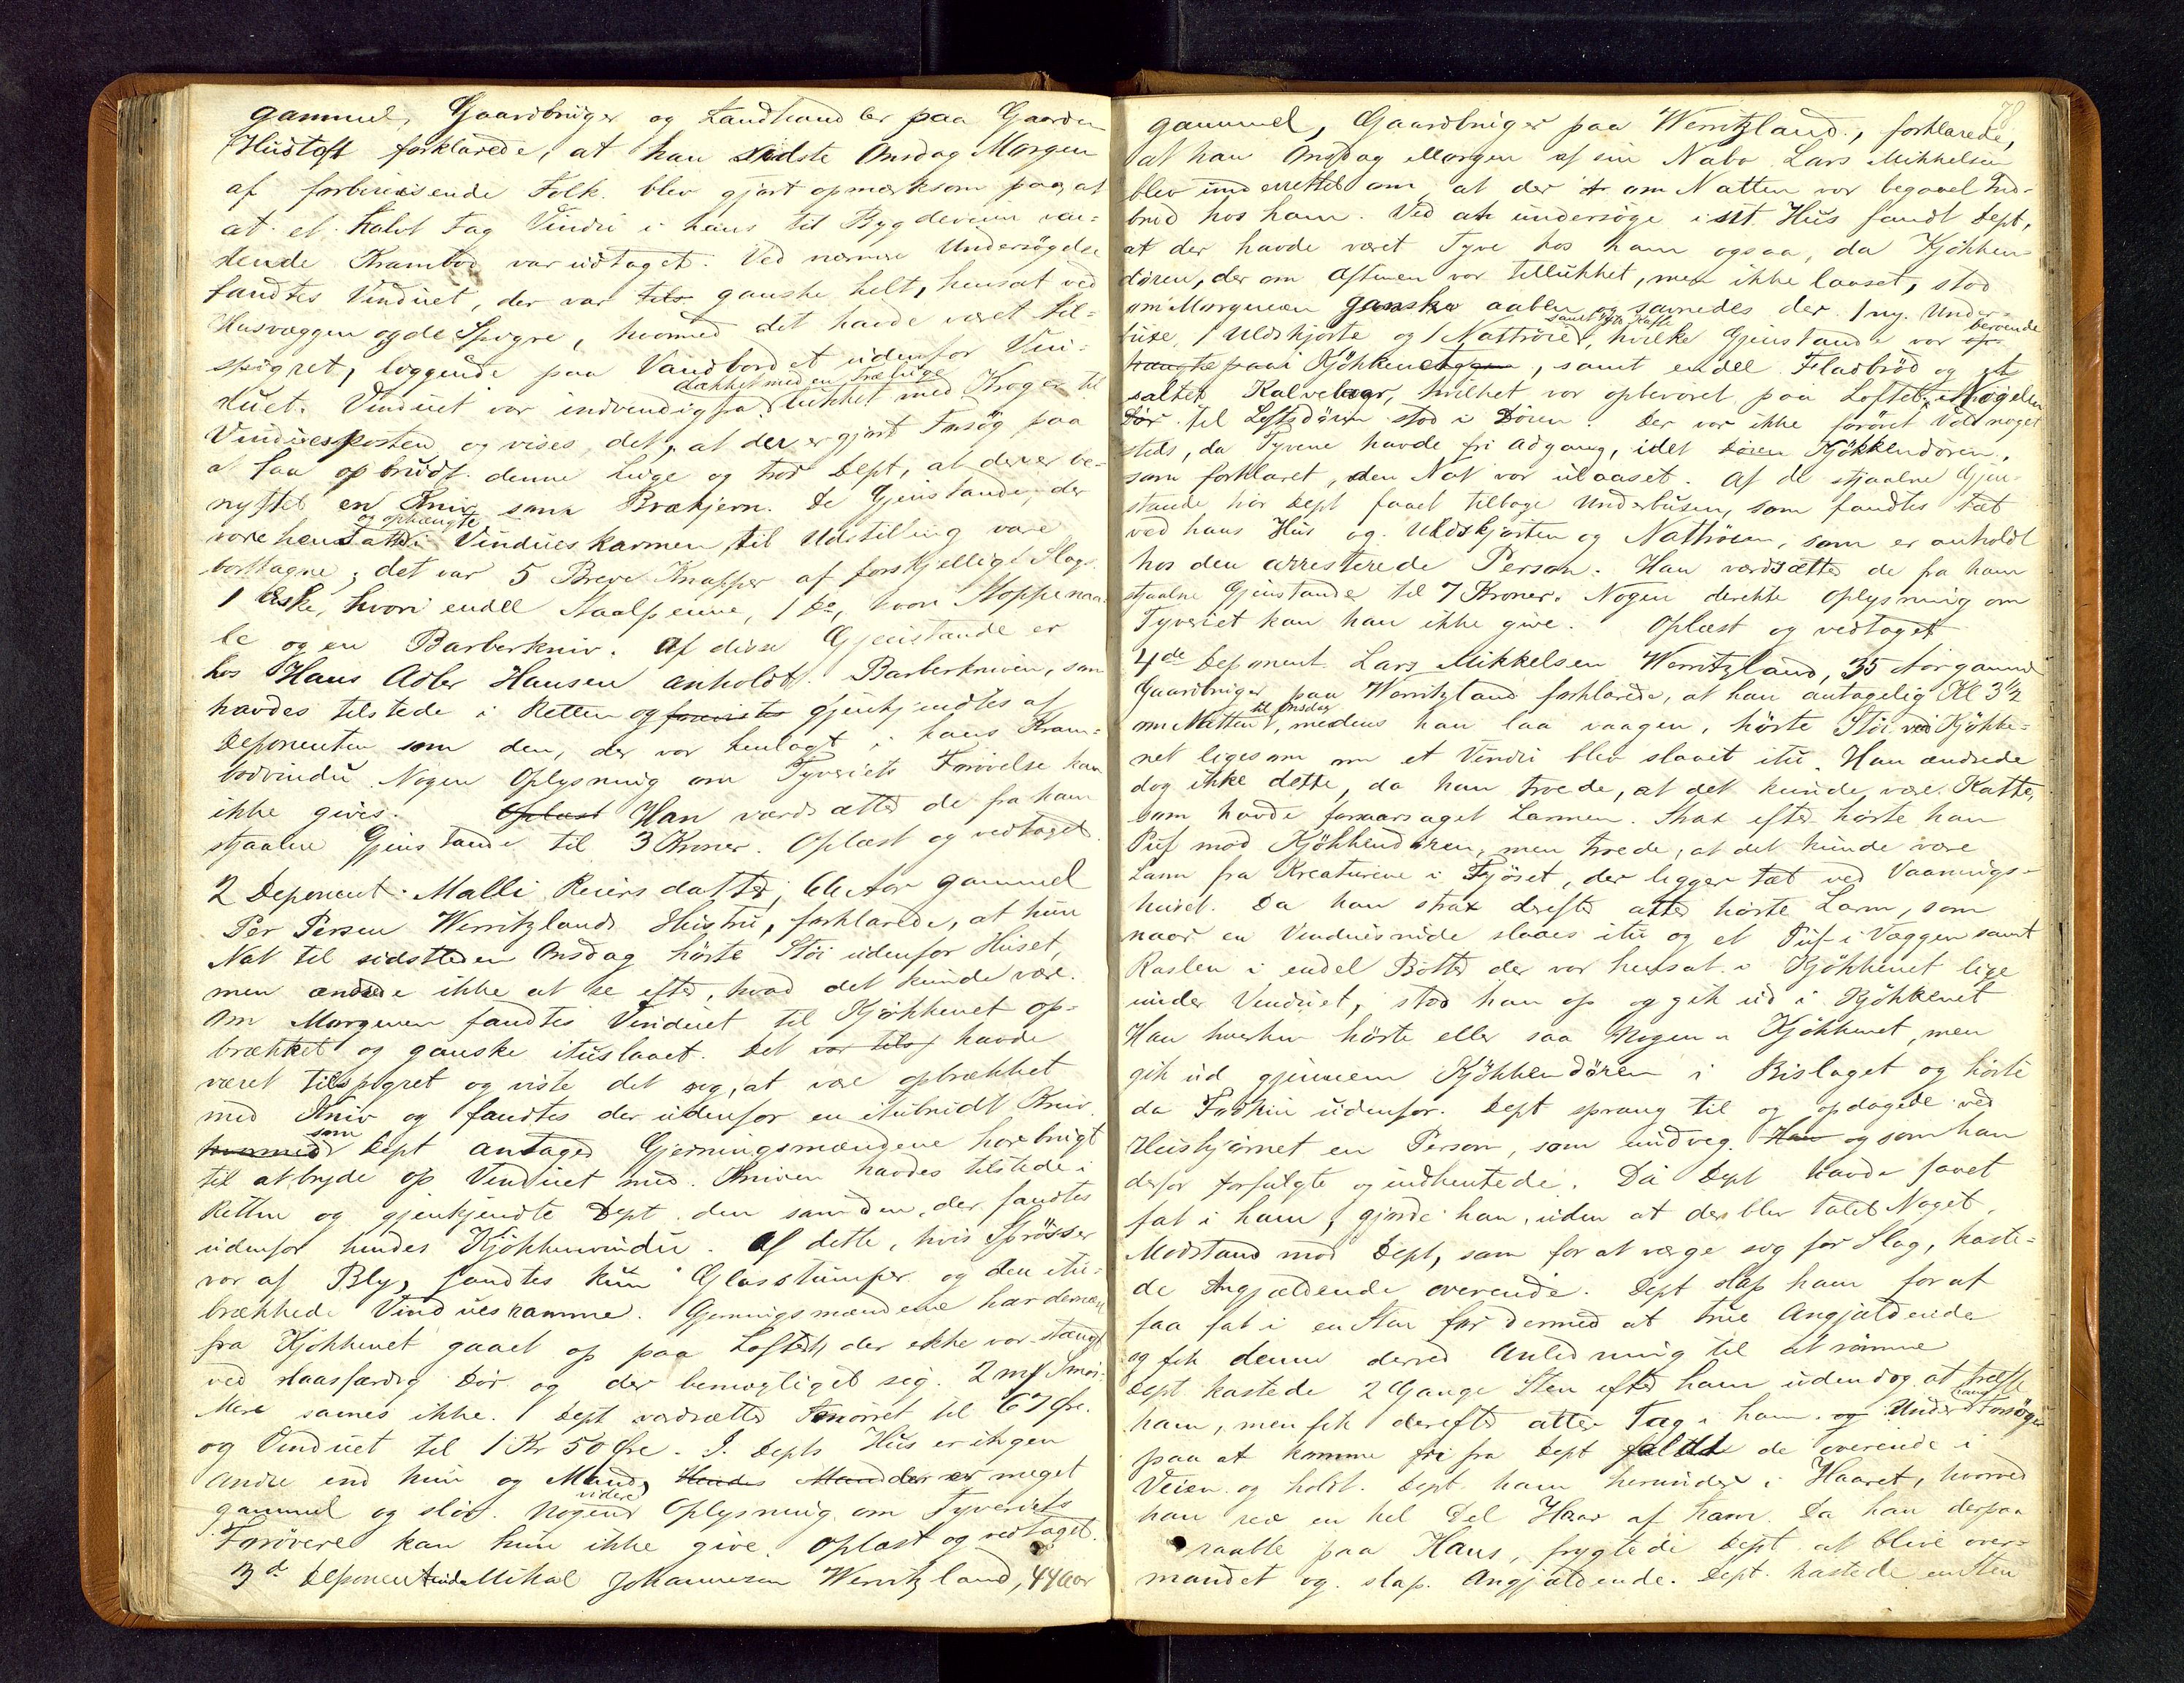 gammel, Gaardbruger og Landhandler paa Gaarden
Hustoft forklarede, at han sidste Onsdag Morgen
af forbireisende Folk blev gjort opmærksom paa, at
at et halvt Fag Vindu i hans til Bygdeveien ven-
dende Krambod var udtaget. Ved nærmere Undersøgelse
fandtes Vinduet, der var ganske helt, hensat ved
Husvæggen og de Spigre, hvormed det havde været til-
spigret, liggende paa Vandbordet udenfor Vin-
dækket med en Træluge
duet. Vinduet var indvendig fra lukket med Kroger til
Vinduesposten og vises det, at der er gjort Forsøg paa
at faa opbrudt denne Luge og tror Dept, at der er be-
nyttet en Kniv som Brækjern. De Gjenstande, der
og ophængte
vare hensatte i Vindueskarmen til Udstilling vare
borttagne; det var 5 Breve Knapper af forskjellige Slags,
1 Æske, hvori endel Staalpenne, 1 do, hvori Stoppenaa-
le og en Barberkniv. Af disse Gjenstande er
hos Hans Adler Hansen anholdt Barberkniven, som
havdes tilstede i Retten og gjenkjendtes af
Deponenten som den, der var henlagt i hans Kram-
bodvindu. Nogen Oplysning om Tyveriets Forøvelse kan
ikke gives. Oplæst Han værdsætter de fra ham
stjaalne Gjenstande til 3 Kroner. Oplæst og vedtaget.
2 Deponent Malli Reiersdatter, 66 Aar gammel
Per Persen Werritzlands Hustru, forklarede, at hun
Nat til sidstleden Onsdag hørte Støi udenfor Huset,
men ændsede ikke at se efter, hvad det kunde være.
Om Morgenen fandtes Vinduet til Kjøkkenet op-
brækket og ganske ituslaaet. Det var havde
været tilspigret og viste det sig, at være opbrækket
med Kniv og fandtes der udenfor en itubrudt Kniv
som
hvormed Dept antager Gjerningsmændene har brugt
til at bryde op Vinduet med. Kniven havdes tilstede i
Retten og gjenkjendte Dept den som den, der fandtes
udenfor hendes Kjøkkenvindu. Af dette, hvis Sprosser
var af Bly, fandtes kun Glasstumper og den itu-
brækkede Vinduesramme. Gjerningsmændene har dernæst
fra Kjøkkenet gaaet op paa Loftet, der ikke var stængt
ved slaasfærdig Dør og der bemægtiget sig 2 mk Smør.
Mere savnes ikke. Dept værdsætter Smørret til 67 Øre.
og Vinduet til 1 Kr 50 Øre. I Depts Hus er ingen
andre end hun og Mand, Hendes Mand der er meget
videre
gammel og sløv. Nogen Oplysning om Tyveriets
Forøvere kan hun ikke give. Oplæst og vedtaget.
3d Deponent Mikal Johannesen Werritzland, 44 Aar
gammel, Gaardbruger paa Werritzland, forklarede,
at han Onsdag Morgen af sin Nabo Lars Mikkelsen
blev underrettet om, at der om Natten var begaaet Ind-
brud hos ham. Ved at undersøge i sit Hus fandt Dept,
at der havde været Tyve hos ham ogsaa, da Kjøkken-
døren, der om Aftenen var tillukket, men ikke laaset, stod
om Morgenen ganske aaben og savnedes der 1 ny Under-
samt Kaffe
buxe, 1 Uldskjorte og 1 Nattrøie, hvilke Gjenstande var
beroende
i Kjøkkenet, samt endel Fladbrød og et
saltet Kalvelaar, hvilket var opbevaret paa Loftet. Nøgelen
til Loftsdøren stod i Døren. Der var ikke forøvet Vold noget
steds, da Tyvene havde fri Adgang, idet Kjøkkendøren,
som forklaret, den Nat var ulaaset. Af de stjaalne Gjen-
stande har Dept faaet tilbage Underbuxen, som fandtes tæt
ved hans Hus og Uldskjorten og Nattrøien, som er anholdt
hos den arresterede Person. Han værdsætter de fra ham
stjaalne Gjenstande til 7 Kroner. Nogen direkte Oplysning om
Tyveriet kan han ikke give. Oplæst og vedtaget
4de Deponent Lars Mikkelsen Werritzland, 35 Aar gammel
Gaardbruger paa Werritzland forklarede, at han antagelig Kl 3 1/2
til Onsdag
om Natten, medens han laa vaagen, hørte Støi ved Kjøkke-
net ligesom om et Vindu blev slaaet itu. Han ændsede
dog ikke dette, da han troede, at det kunde være Katte,
som havde foraarsaget Larmen. Strax efter hørte han
Puf mod Kjøkkendøren, men troede, at det kunde være
Larm fra Kreaturene i Fjøset, der ligger tæt ved Vaanings-
huset. Da han strax derefter atter hørte Larm, som
naar en Vinduesrude slaaes itu og et Puf i Væggen samt
Raslen i endel Bøtter der var hensat i Kjøkkenet lige
under Vinduet, stod han op og gik ud i Kjøkkenet
Han hverken hørte eller saa Nogen i Kjøkkenet, men
gik ud gjennem Kjøkkendøren i Bislaget og hørte
da Fodtrin udenfor. Dept sprang til og opdagede ved
Hushjørnet en Person, som undveg. Han og som han
derfor forfulgte og indhentede. Da Dept havde faaet
fat i ham, gjorde han, uden at der blev talet Noget,
Modstand mod Dept, som for at værge sig for Slag, kaste-
de Angjældende overende. Dept slap ham for at
faa fat i en Sten for dermed at true Angjældende
og fik denne derved Anledning til at rømme
Dept kastede 2 Gange Sten efter ham uden dog at træffe
ham, men fik derefter atter Tag i ham. og Under hans Forsøg
paa at komme fri fra Dept faldt de overende i
Veien og holdt Dept ham herunder i Haaret, hvorved
han rev en hel Del Haar af ham. Da han derpaa
raabte paa Hans, frygtede Dept at blive over-
mandet og slap Angjældende. Dept kastede en Sten